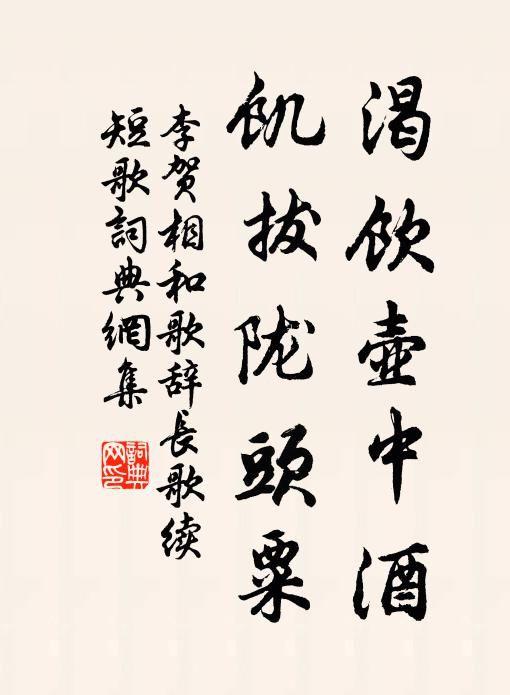 渴饮壶中酒
饥拔陇头粟
李贺相和歌辞长歌续
短歌词典网集
词典网印